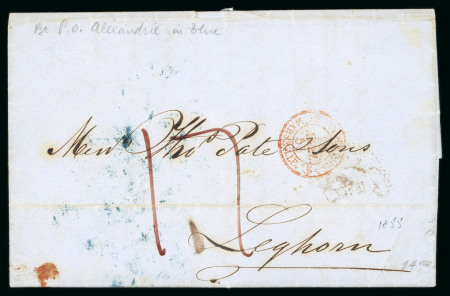 Br P.O. Alexandrie in blue
Messrs Thos Pate & Sons
17
Leghorn
1853